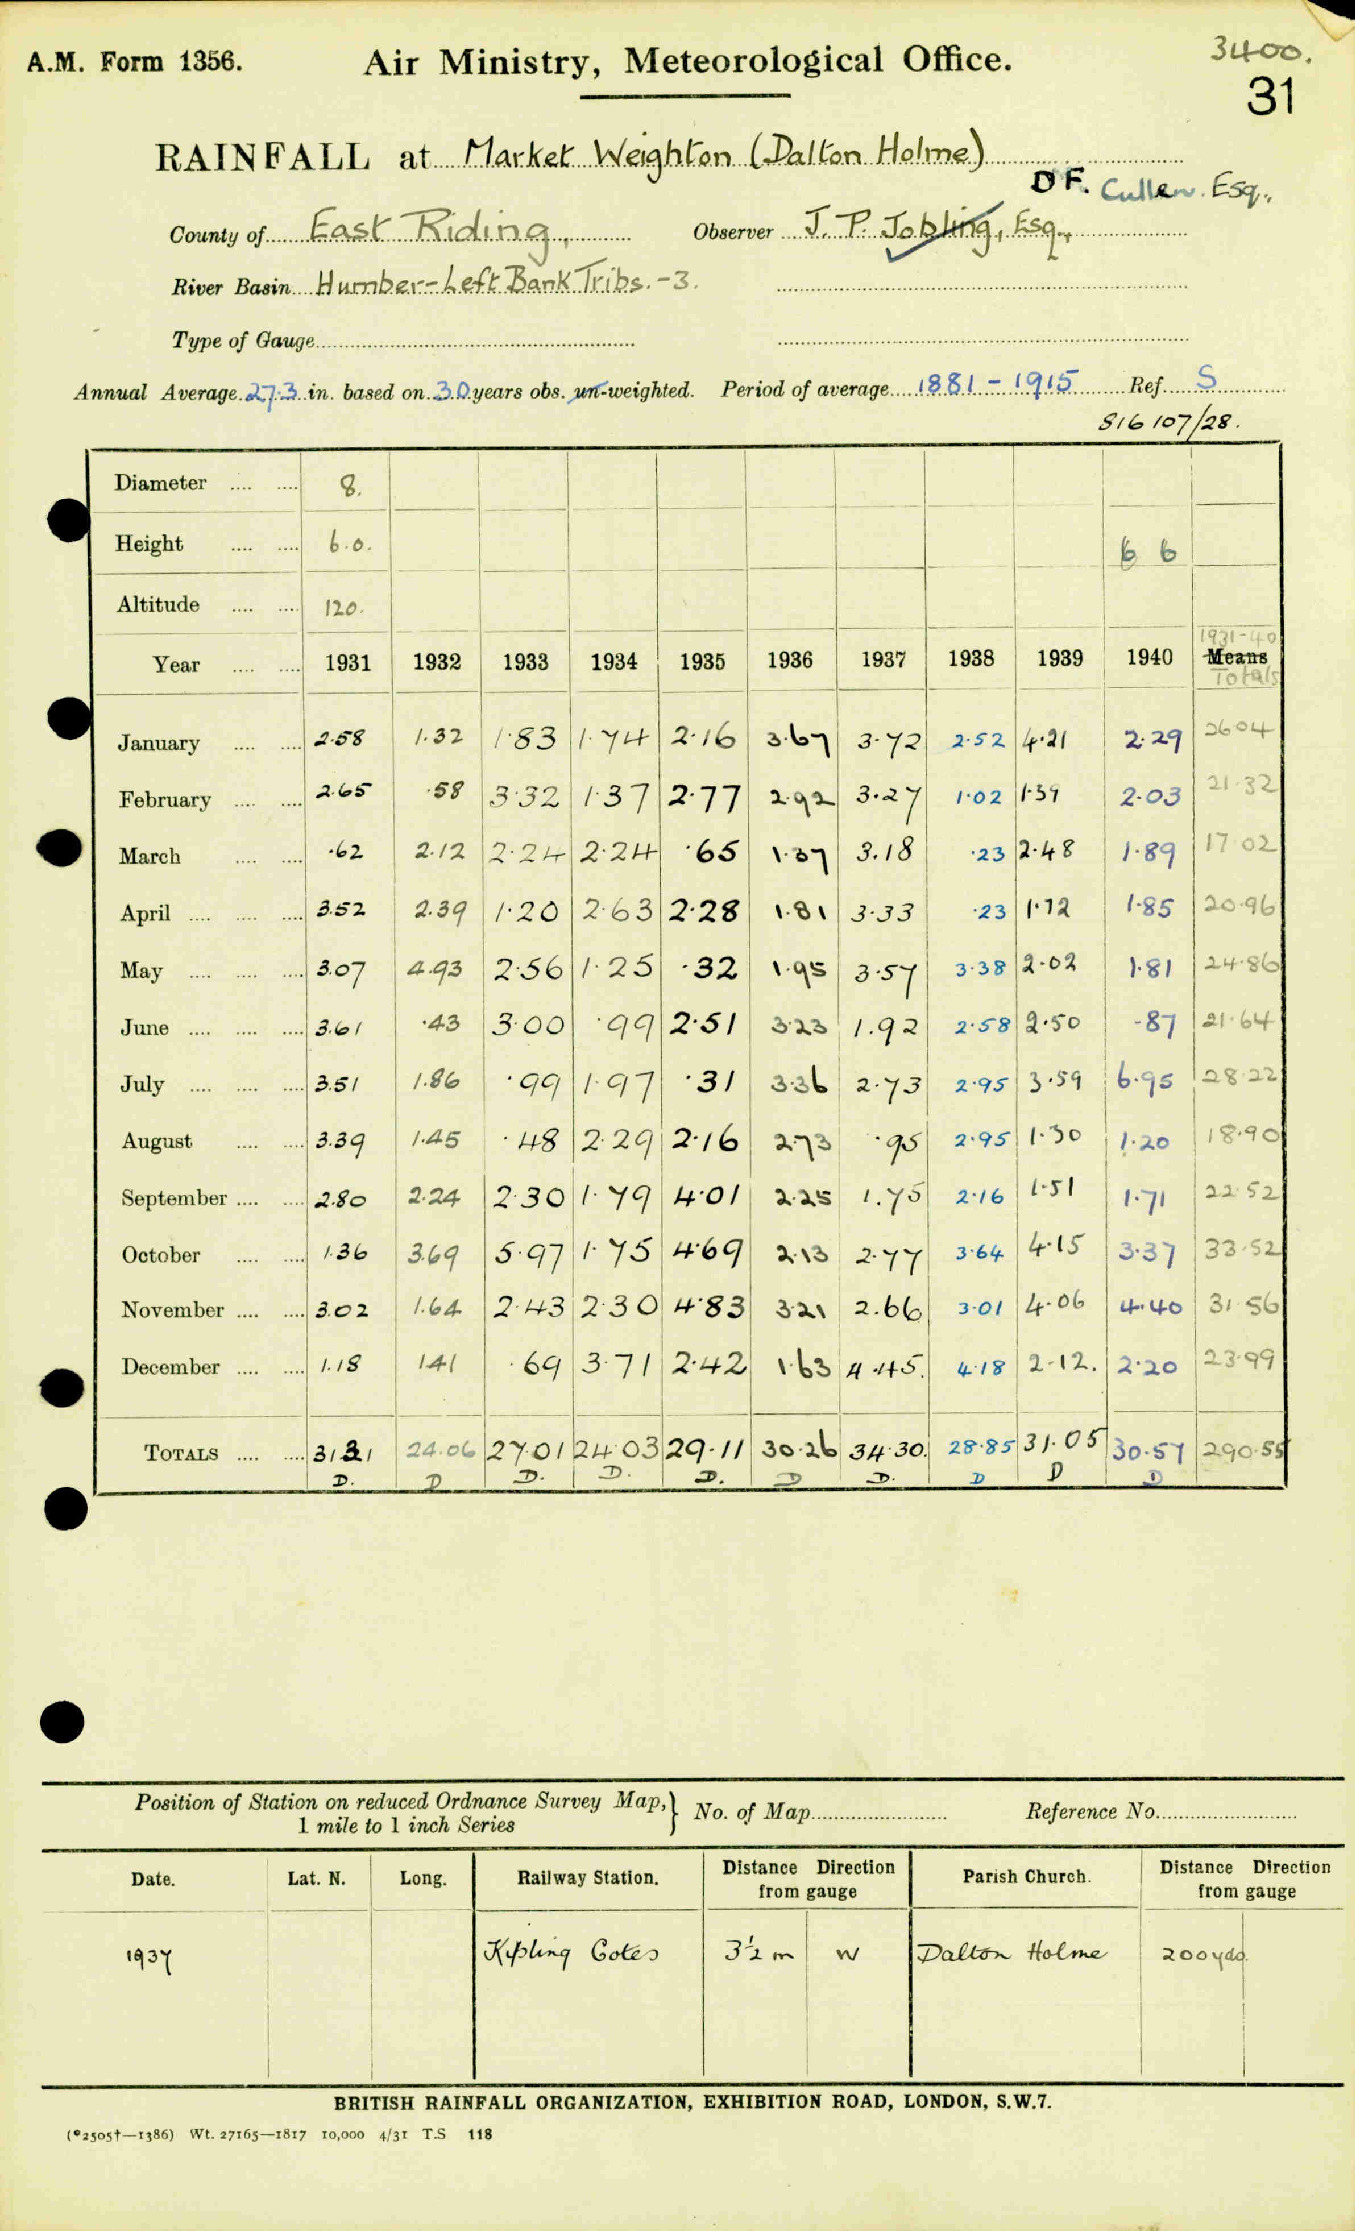 3400.
A.M. Form 1356. Air Ministry, Meteorological Office.
31
RAINFALL at Market Weighton (Dalton Holme)
D F. Cullen. Esq.,
County of East Riding, Observer J. P. Jobling, Esq.,
River Basin Humber-Left Bank Tribs. -3.
Type of Gauge
Annual Average 27.3 in. based on 30 years obs. un-weighted. Period of average 1881-1915 Ref. S
S16 107/28.
Diameter 8.
Height 6.0. 6 6
Altitude 120.
1931-40
Year 1931 1932 1933 1934 1935 1936 1937 1938 1939 1940 Means
Totals
January 2.58 1.32 1.83 1.74 2.16 3.67 3.72 2.52 4.21 2.29 26.04
February 2.65 .58 3.32 1.37 2.77 2.92 3.27 1.02 1.39 2.03 21.32
March .62 2.12 2.24 2.24 .65 1.37 3.18 .23 2.48 1.89 17.02
April 3.52 2.39 1.20 2.63 2.28 1.81 3.33 .23 1.72 1.85 20.96
May 3.07 4.93 2.56 1.25 .32 1.95 3.57 3.38 2.02 1.81 24.86
June 3.61 .43 3.00 .99 2.51 3.23 1.92 2.58 2.50 .87 21.64
July 3.51 1.86 .99 1.97 .31 3.36 2.73 2.95 3.59 6.95 28.22
August 3.39 1.45 .48 2.29 2.16 2.73 .95 2.95 1.30 1.20 18.90
September 2.80 2.24 2.30 1.79 4.01 2.25 1.75 2.16 1.51 1.71 22.52
October 1.36 3.69 5.97 1.75 4.69 2.13 2.77 3.64 4.15 3.37 33.52
November 3.02 1.64 2.43 2.30 4.83 3.21 2.66 3.01 4.06 4.40 31.56
December 1.18 1.41 .69 3.71 2.42 1.63 4.45. 4.18 2.12. 2.20 23.99
TOTALS 31.31 24.06 27.01 24.03 29.11 30.26 34.30. 28.85 31.05 30.57 290.55
D. D D. D. D. D D. D D D
Position of Station on reduced Ordnance Survey Map,} No. of Map Reference No.
1 mile to 1 inch Series
Date. Lat. N. Long. Railway Station. Distance Direction Parish Church. Distance Direction
from gauge from gauge
1937 Kipling Cotes 3½ m W Dalton Holme 200 yds.
BRITISH RAINFALL ORGANIZATION, EXHIBITION ROAD, LONDON, S.W.7.
(*2505†—1386) Wt. 27165—1817 10,000 4/31 T.S 118